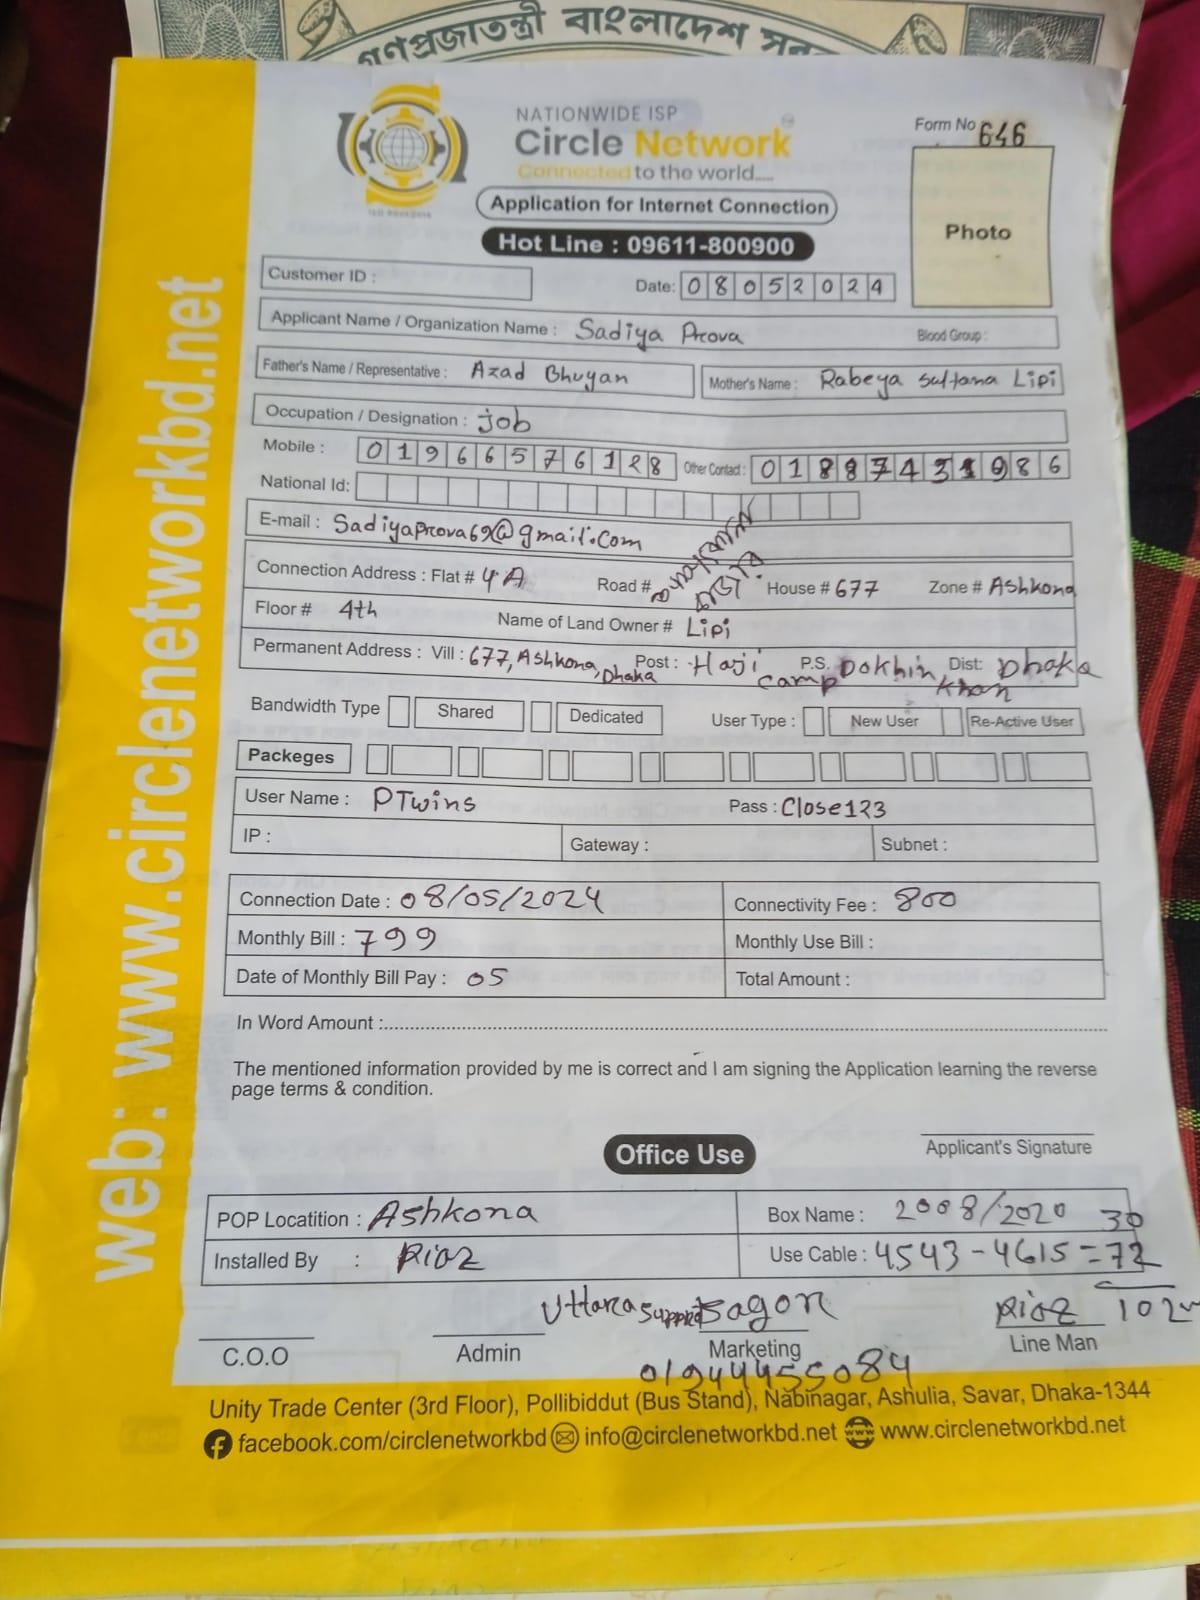 গণপ্রজাতন্ত্রী বাংলাদেশ
web: www.circlenetworkbd.net
NATIONWIDE ISP
Circle Network
Connected to the world....
Form No 646
Application for Internet Connection
Hot Line : 09611-800900
Photo
Customer ID :
Date: 08052024
Applicant Name / Organization Name : Sadiya Prova Blood Group :
Father's Name / Representative : Azad Bhuyan Mother's Name : Rabeya Sultana Lipi
Occupation / Designation : job
Mobile : 01966576128 Other Contact : 01887431986
National Id:
E-mail : Sadiyaprova69@gmail.com
Connection Address : Flat # 4A Road # House # 677 Zone # Ashkona
Floor # 4th Name of Land Owner # Lipi
Permanent Address : Vill : 677, Ashkona, Dhaka Post : Haji Camp P.S. Dakhin Khan Dist: Dhaka
Bandwidth Type Shared Dedicated User Type : New User Re-Active User
Packeges
User Name : PTwins Pass : Close123
IP : Gateway : Subnet :
Connection Date : 08/05/2024 Connectivity Fee : 800
Monthly Bill : 799 Monthly Use Bill :
Date of Monthly Bill Pay : 05 Total Amount :
In Word Amount :
The mentioned information provided by me is correct and I am signing the Application learning the reverse
page terms & condition.
Applicant's Signature
Office Use
POP Locatition : Ashkona Box Name : 2008/2020 30
Installed By : Rioz Use Cable : 4543-4615=72
Uttara Support Sagor Rioz 102
C.O.O Admin Marketing Line Man
01944455084
Unity Trade Center (3rd Floor), Pollibiddut (Bus Stand), Nabinagar, Ashulia, Savar, Dhaka-1344
facebook.com/circlenetworkbd info@circlenetworkbd.net www.circlenetworkbd.net